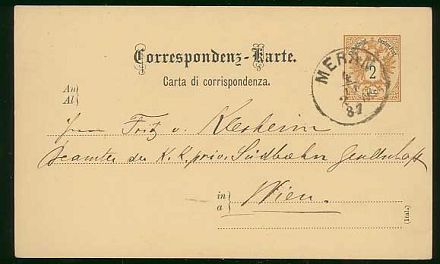 Correspondenz-Karte.
Carta di corrispondenza.
MERAN
2
87
An
Al
Herrn Fritz v. Klesheim
Beamter der K. K. priv. Südbahn Gesellschaft
in
a
Wien.
(Ital.)